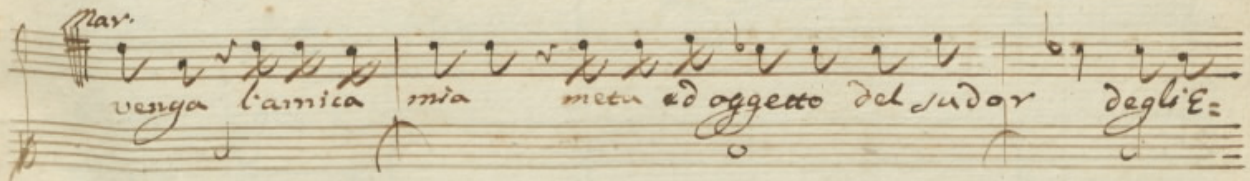 Mar.
venga l'amica mia meta ed oggetto del sudor degli E=